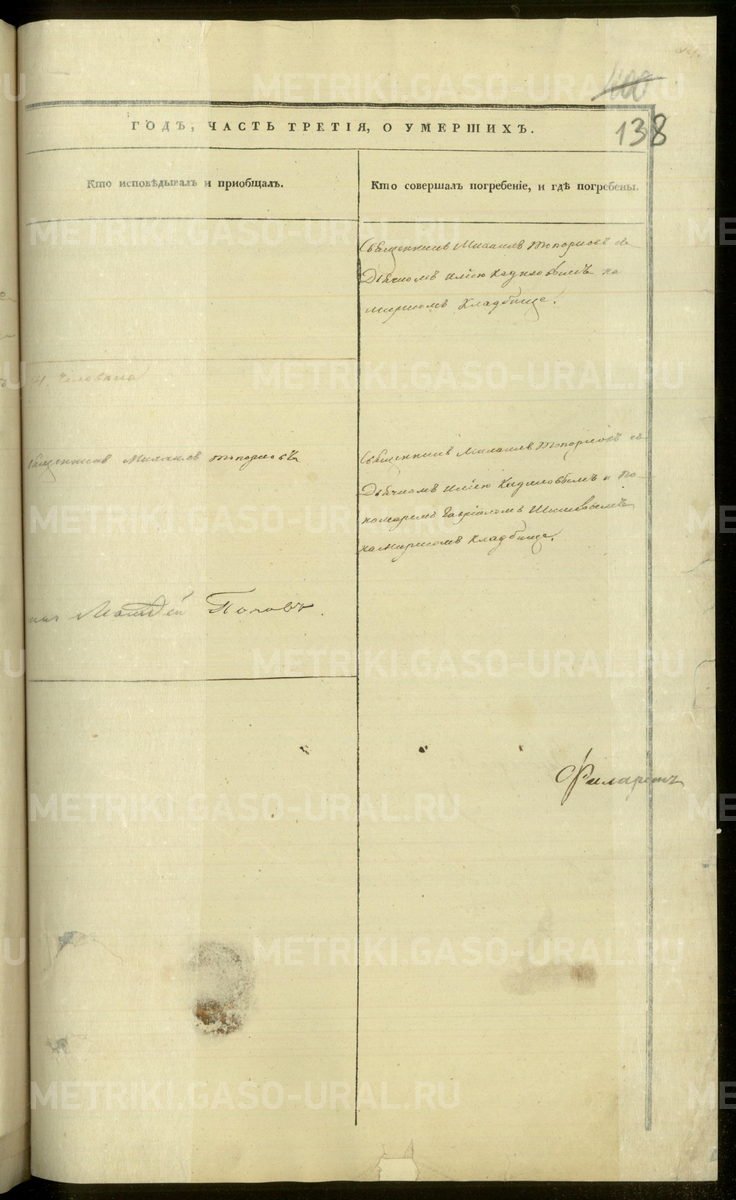 138
ГОДЪ, ЧАСТЬ ТРЕТІЯ, О УМЕРШИХЪ.
Кто исповѣдывалъ и приобщалъ.
Кто совершалъ погребеніе, и гдѣ погребены.
Священникъ Михаилъ Топорковъ съ
Дьячкомъ на
мирскомъ кладбище.
4. человека
Священникъ Михаилъ Топорковъ
Священникъ Михаилъ Топорковъ съ
Дьячкомъ и По-
номаремъ
на мирскомъ кладбище.
Поповъ.
Филаретъ
METRIKI.GASO-URAL.RU